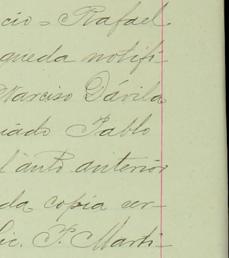 cio = Rafael
queda notifi-
Narciso Dávila
iado Pablo
l auto anterior
da copia cer-
ic. P. Marti-